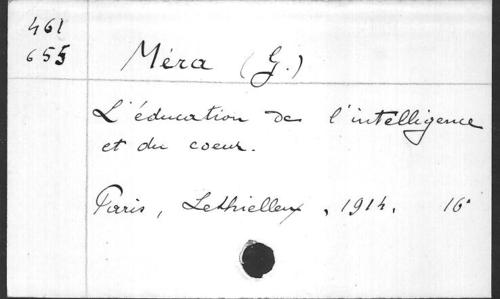 461
655
Méra (G.)
L'éducation de l'intelligence
et du coeur.
Paris, Lethielleux, 1914, 16°